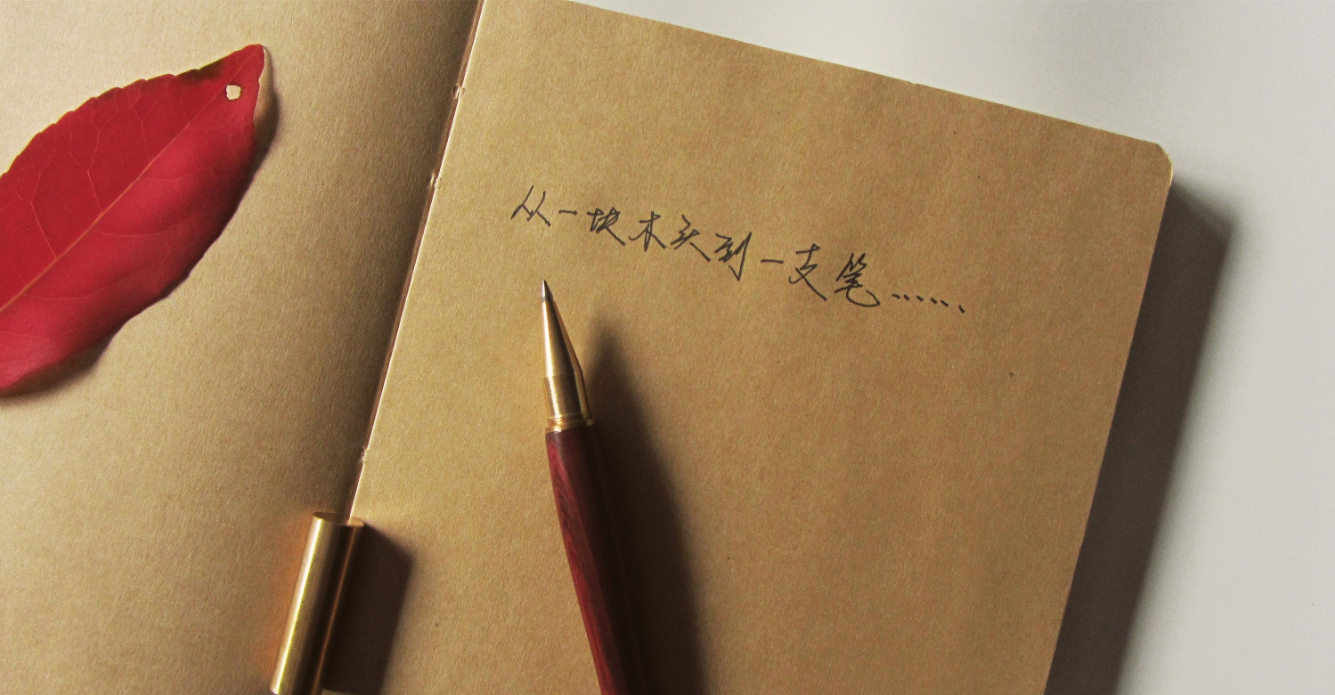 从一块木头到一支笔……